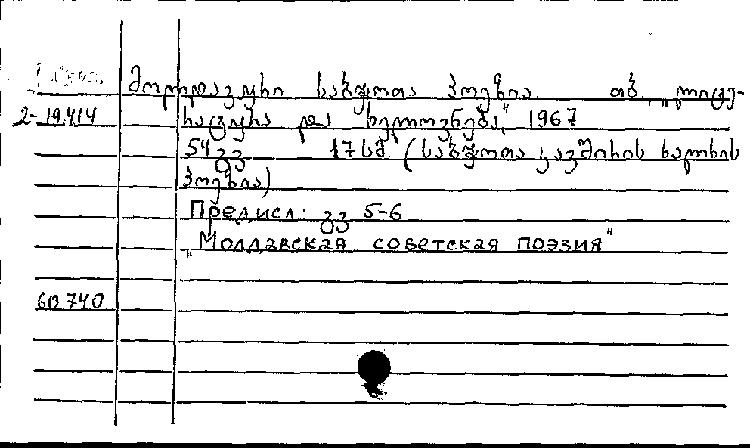 მოლდავური საბჭოთა პოეზია თბ. „ლიტე-
2-19.414 რატურა და ხელოვნება", 1967
54 გვ 17 სმ (საბჭოთა კავშირის ხალხის
პოეზია)
Предисл: გვ 5-6
„Молдавская советская поэзия"
60 740